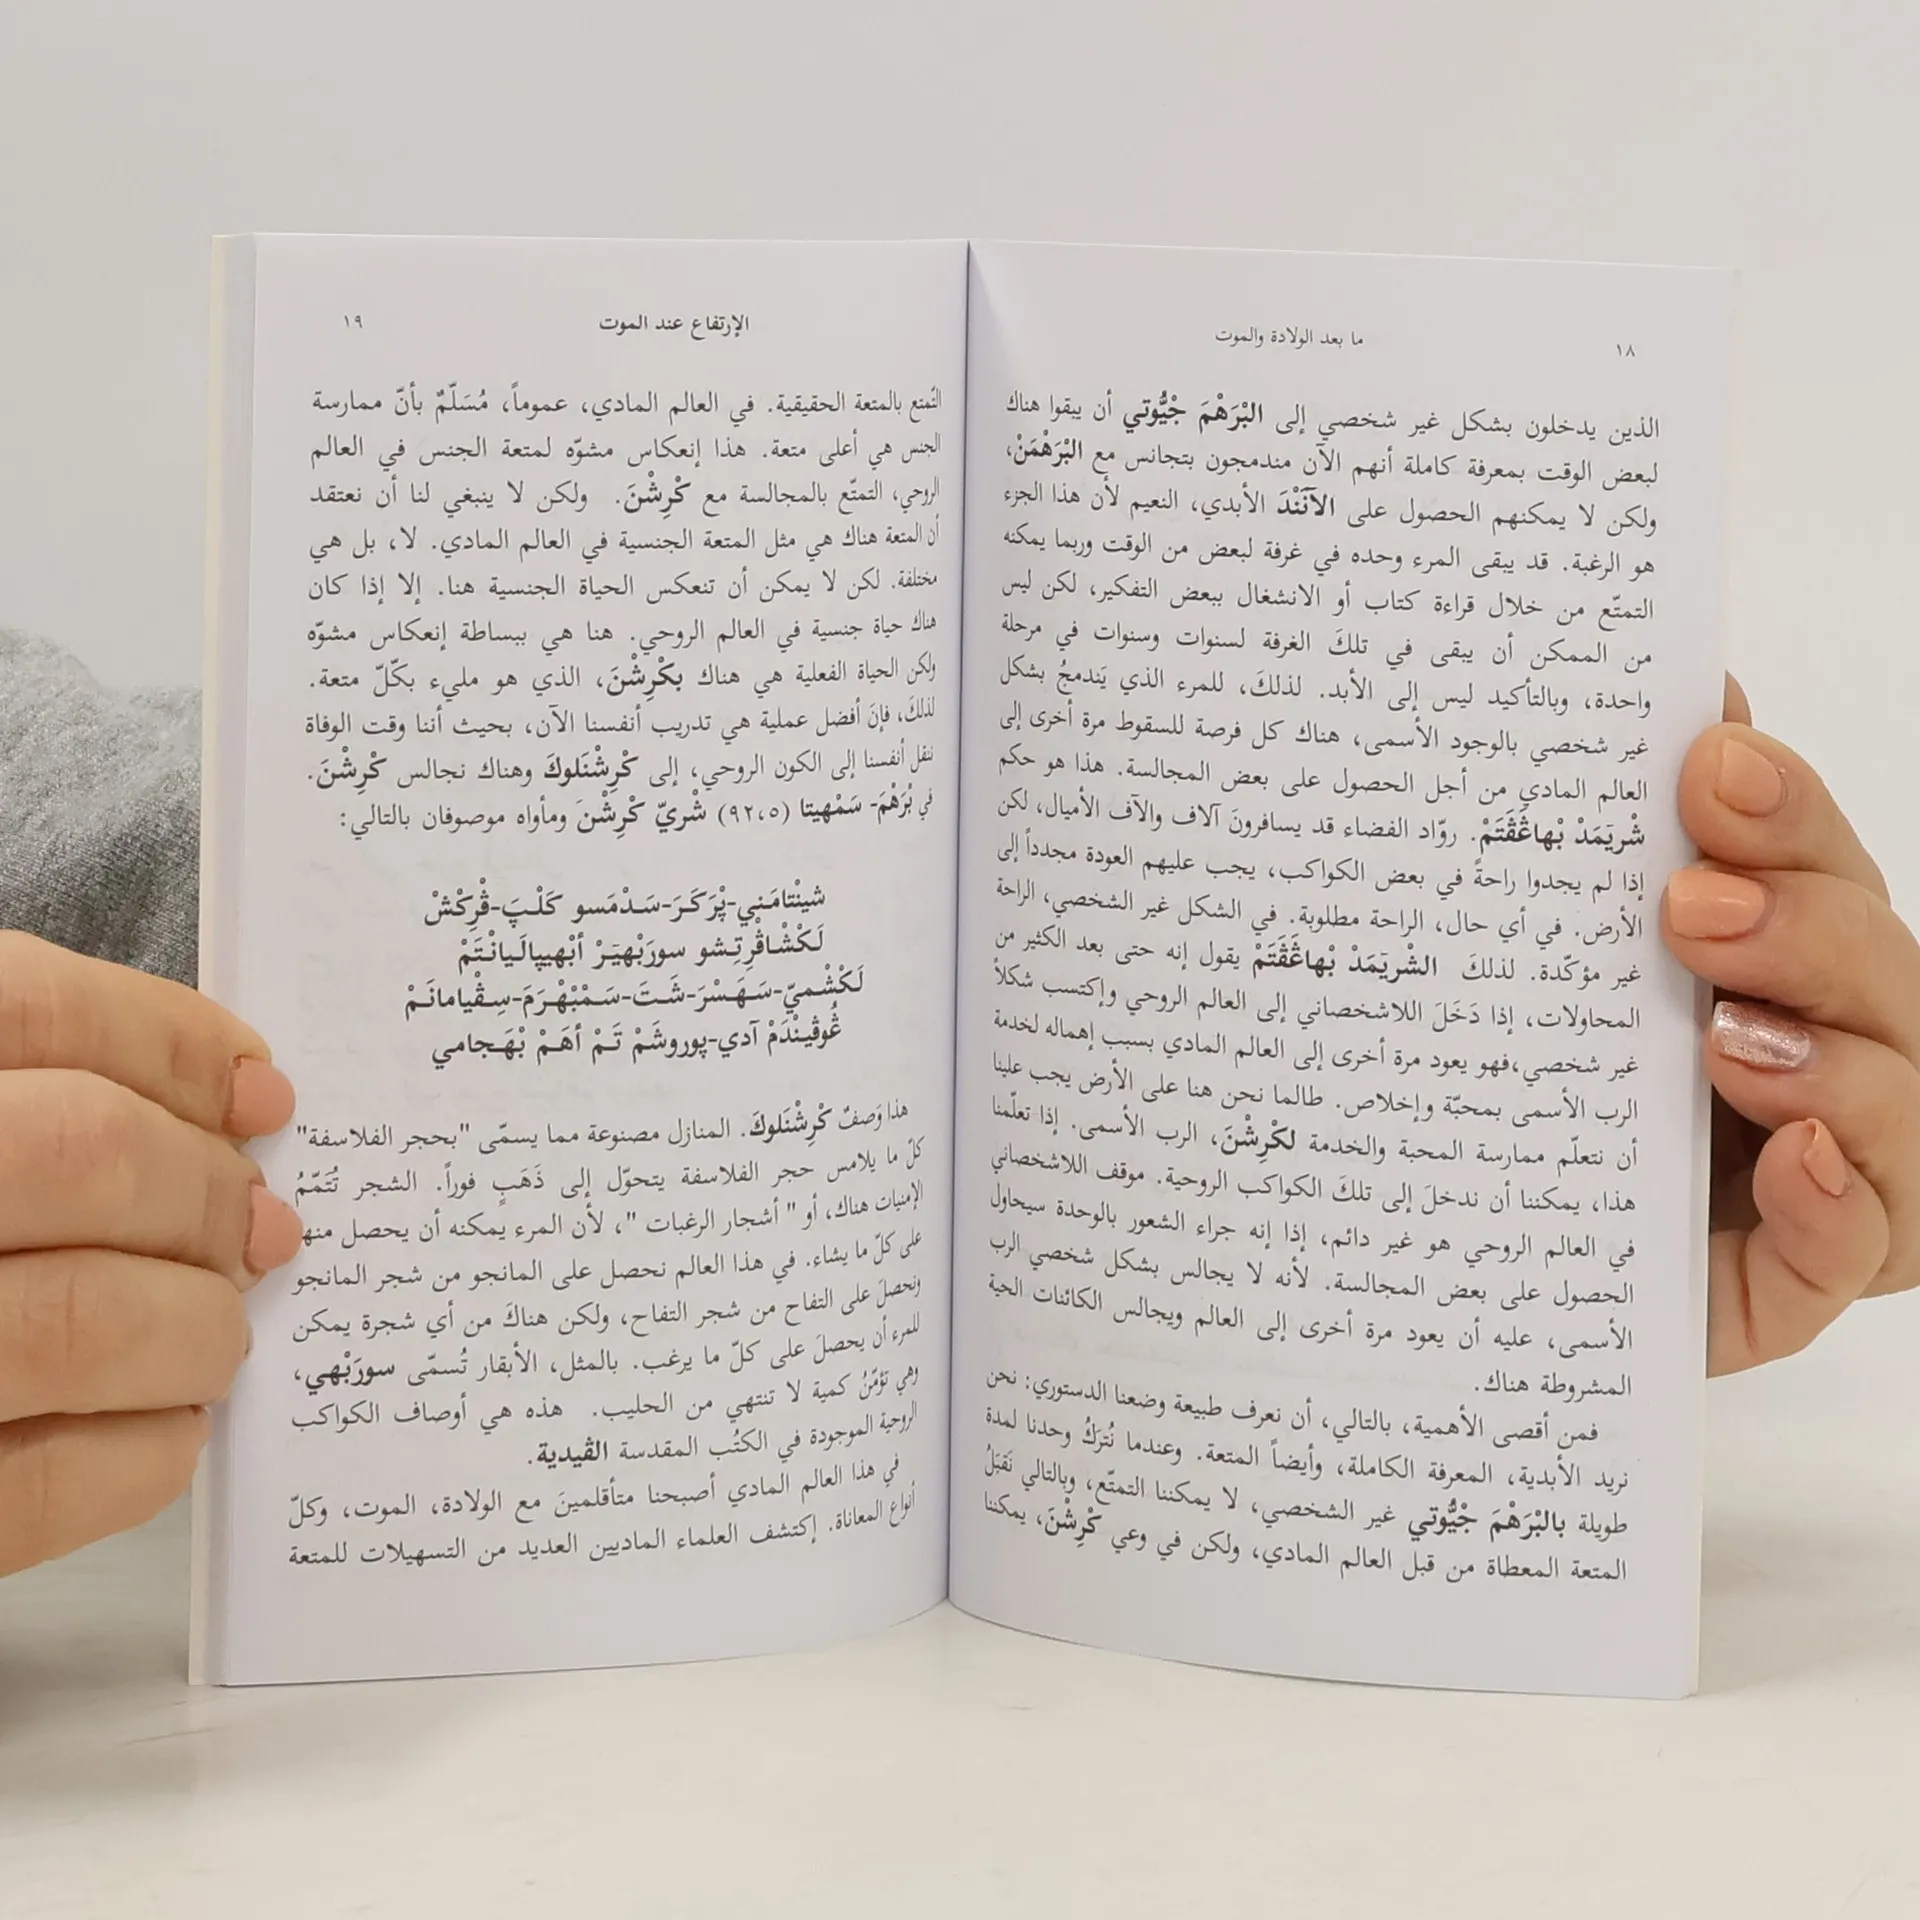 ١٨
ما بعد الولادة والموت
الذين يدخلون بشكل غير شخصي إلى البْرَهْمَ جْيُّوتي أن يبقوا هناك
لبعض الوقت بمعرفة كاملة أنهم الآن مندمجون بتجانس مع البْرَهْمَنْ،
ولكن لا يمكنهم الحصول على الآنَنْدَ الأبدي، النعيم لأن هذا الجزء
هو الرغبة. قد يبقى المرء وحده في غرفة لبعض من الوقت وربما يمكنه
التمتّع من خلال قراءة كتاب أو الانشغال ببعض التفكير، لكن ليس
من الممكن أن يبقى في تلكَ الغرفة لسنوات وسنوات في مرحلة
واحدة، وبالتأكيد ليس إلى الأبد. لذلكَ، للمرء الذي يَندمجُ بشكل
غير شخصي بالوجود الأسمى، هناك كل فرصة للسقوط مرة أخرى إلى
العالم المادي من أجل الحصول على بعض المجالسة. هذا هو حكم
شْريَمَدْ بْهاڠَڤَتَمْ. روّاد الفضاء قد يسافرونَ آلاف والآف الأميال، لكن
إذا لم يجدوا راحةً في بعض الكواكب، يجب عليهم العودة مجدداً إلى
الأرض. في أي حال، الراحة مطلوبة. في الشكل غير الشخصي، الراحة
غير مؤكّدة. لذلكَ الشْريَمَدْ بْهاڠَڤَتَمْ يقول إنه حتى بعد الكثير من
المحاولات، إذا دَخَلَ اللاشخصاني إلى العالم الروحي وإكتسب شكلاً
غير شخصي،فهو يعود مرة أخرى إلى العالم المادي بسبب إهماله لخدمة
الرب الأسمى بمحبّة وإخلاص. طالما نحن هنا على الأرض يجب علينا
أن نتعلّم ممارسة المحبة والخدمة لكْرِشْنَ، الرب الأسمى. إذا تعلّمنا
هذا، يمكننا أن ندخلَ إلى تلكَ الكواكب الروحية. موقف اللاشخصاني
في العالم الروحي هو غير دائم، إذا إنه جراء الشعور بالوحدة سيحاول
الحصول على بعض المجالسة. لأنه لا يجالس بشكل شخصي الرب
الأسمى، عليه أن يعود مرة أخرى إلى العالم ويجالس الكائنات الحية
المشروطة هناك.
فمن أقصى الأهمية، بالتالي، أن نعرف طبيعة وضعنا الدستوري: نحن
نريد الأبدية، المعرفة الكاملة، وأيضاً المتعة. وعندما نُترَكُ وحدنا لمدة
طويلة بالبْرَهْمَ جْيُّوتي غير الشخصي، لا يمكننا التمتّع، وبالتالي نَقبَلُ
المتعة المعطاة من قبل العالم المادي، ولكن في وعي كْرِشْنَ، يمكننا
الإرتفاع عند الموت
١٩
التّمتع بالمتعة الحقيقية. في العالم المادي، عموماً، مُسَلّمٌ بأنّ ممارسة
الجنس هي أعلى متعة. هذا إنعكاس مشوّه لمتعة الجنس في العالم
الروحي، التمتّع بالمجالسة مع كْرِشْنَ. ولكن لا ينبغي لنا أن نعتقد
أن المتعة هناك هي مثل المتعة الجنسية في العالم المادي. لا، بل هي
مختلفة. لكن لا يمكن أن تنعكس الحياة الجنسية هنا. إلا إذا كان
هناك حياة جنسية في العالم الروحي. هنا هي ببساطة إنعكاس مشوّه
ولكن الحياة الفعلية هي هناك بكْرِشْنَ، الذي هو مليء بكّلّ متعة.
لذلكَ، فإنَ أفضل عملية هي تدريب أنفسنا الآن، بحيث أننا وقت الوفاة
ننقل أنفسنا إلى الكون الروحي، إلى كْرِشْنَلوكَ وهناك نجالس كْرِشْنَ.
في بْرَهْمَ- سَمْهيتا (٩٢،٥) شْريّ كْرِشْنَ ومأواه موصوفان بالتالي:
شينْتامَني-پْرَكَرَ-سَدْمَسو كَلْپَ-ڤْرِكْشْ
لَكْشْاڤْرِتِشو سورَبْهيَرْ أبْهيپالَيانْتَمْ
لَكْشْميّ-سَهَسْرَ-شَتَ-سَمْبْهْرَمَ-سِڤْيامانَمْ
ڠُوڤيْندَمْ آدي-پوروشَمْ تَمْ أهَمْ بْهَجامي
هذا وَصفٌ كْرِشْنَلوكَ. المنازل مصنوعة مما يسمّى "بحجر الفلاسفة"
كلّ ما يلامس حجر الفلاسفة يتحوّل إلى ذَهَبٍ فوراً. الشجر تُتَمّمُ
الإمنيات هناك، أو " أشجار الرغبات "، لأن المرء يمكنه أن يحصل منها
على كلّ ما يشاء. في هذا العالم نحصل على المانجو من شجر المانجو
ونحصلَ على التفاح من شجر التفاح، ولكن هناكَ من أي شجرة يمكن
للمرء أن يحصلَ على كلّ ما يرغب. بالمثل، الأبقار تُسمّى سورَبْهي،
وهي تؤمّنُ كمية لا تنتهي من الحليب. هذه هي أوصاف الكواكب
الروحية الموجودة في الكتُب المقدسة الڤيدية.
في هذا العالم المادي أصبحنا متأقلمينَ مع الولادة، الموت، وكلّ
أنواع المعاناة. إكتشف العلماء الماديين العديد من التسهيلات للمتعة